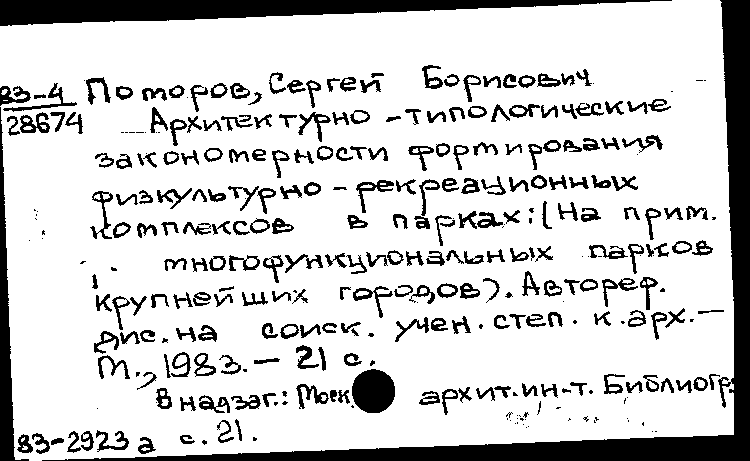 83-4 Поморов, Сергей Борисович
28674 Архитектурно-типологические
закономерности формирования
физкультурно-рекреационных
комплексов в парках: (На прим.
многофункциональных парков
крупнейших городов). Автореф.
дис. на соиск. учен. степ. к. арх. —
М., 1983. — 21 с.
В надзаг.: Моск. архит. ин-т. Библиогр.:
83-2923а с. 21.